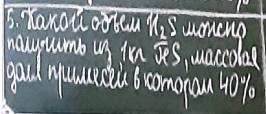 5. Какой объем H₂S можно
получить из 1 кг FeS, массовая
доля примесей в котором 40%